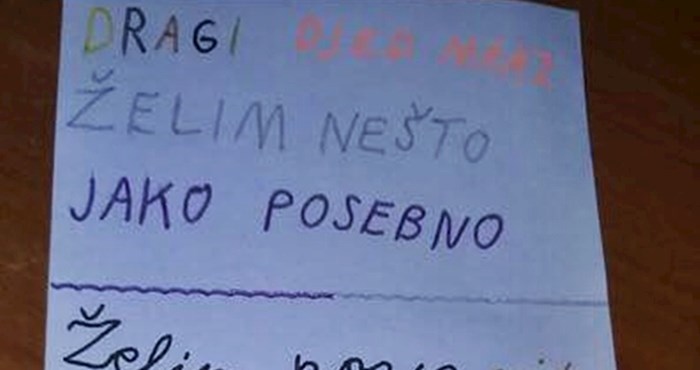 DRAGI DJED MRAZ
ŽELIM NEŠTO
JAKO POSEBNO
Želim